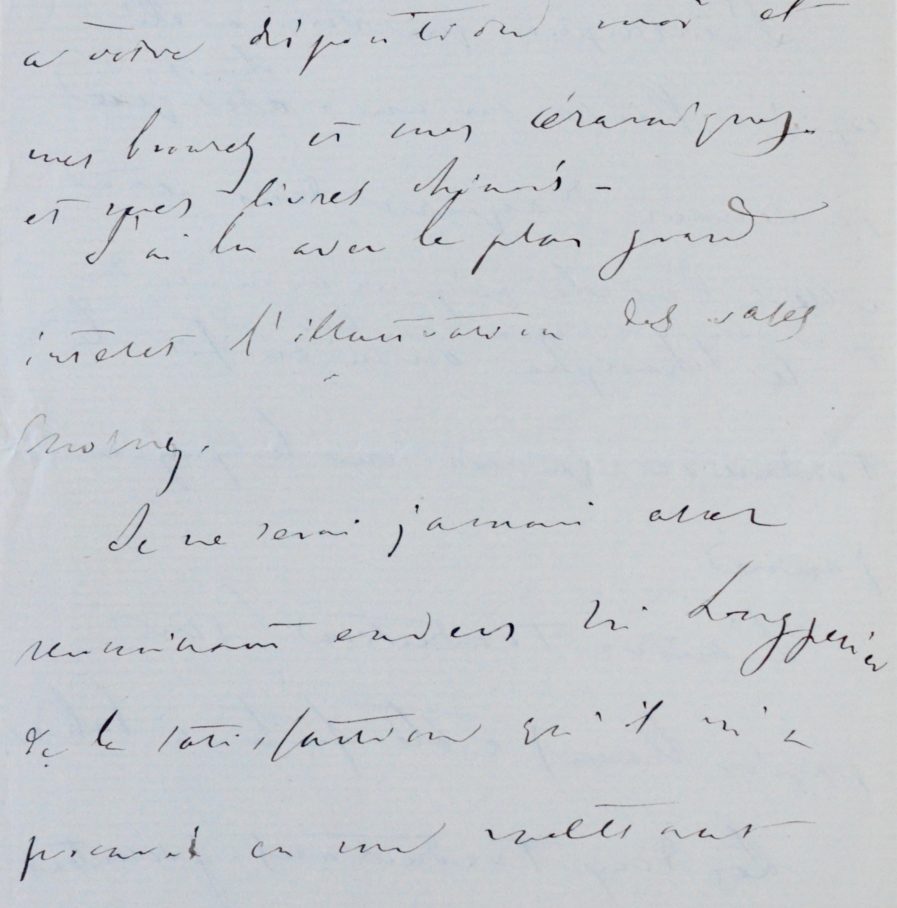 à votre disposition moi et
mes bronzes et mes céramiques
et mes livres chinois -
J'ai lu avec le plus grand
intérêt l'illustration des vases
Je ne serai jamais assez
reconnaissant envers Mr Longperier
de la satisfaction qu'il m'a
procuré en me mettant